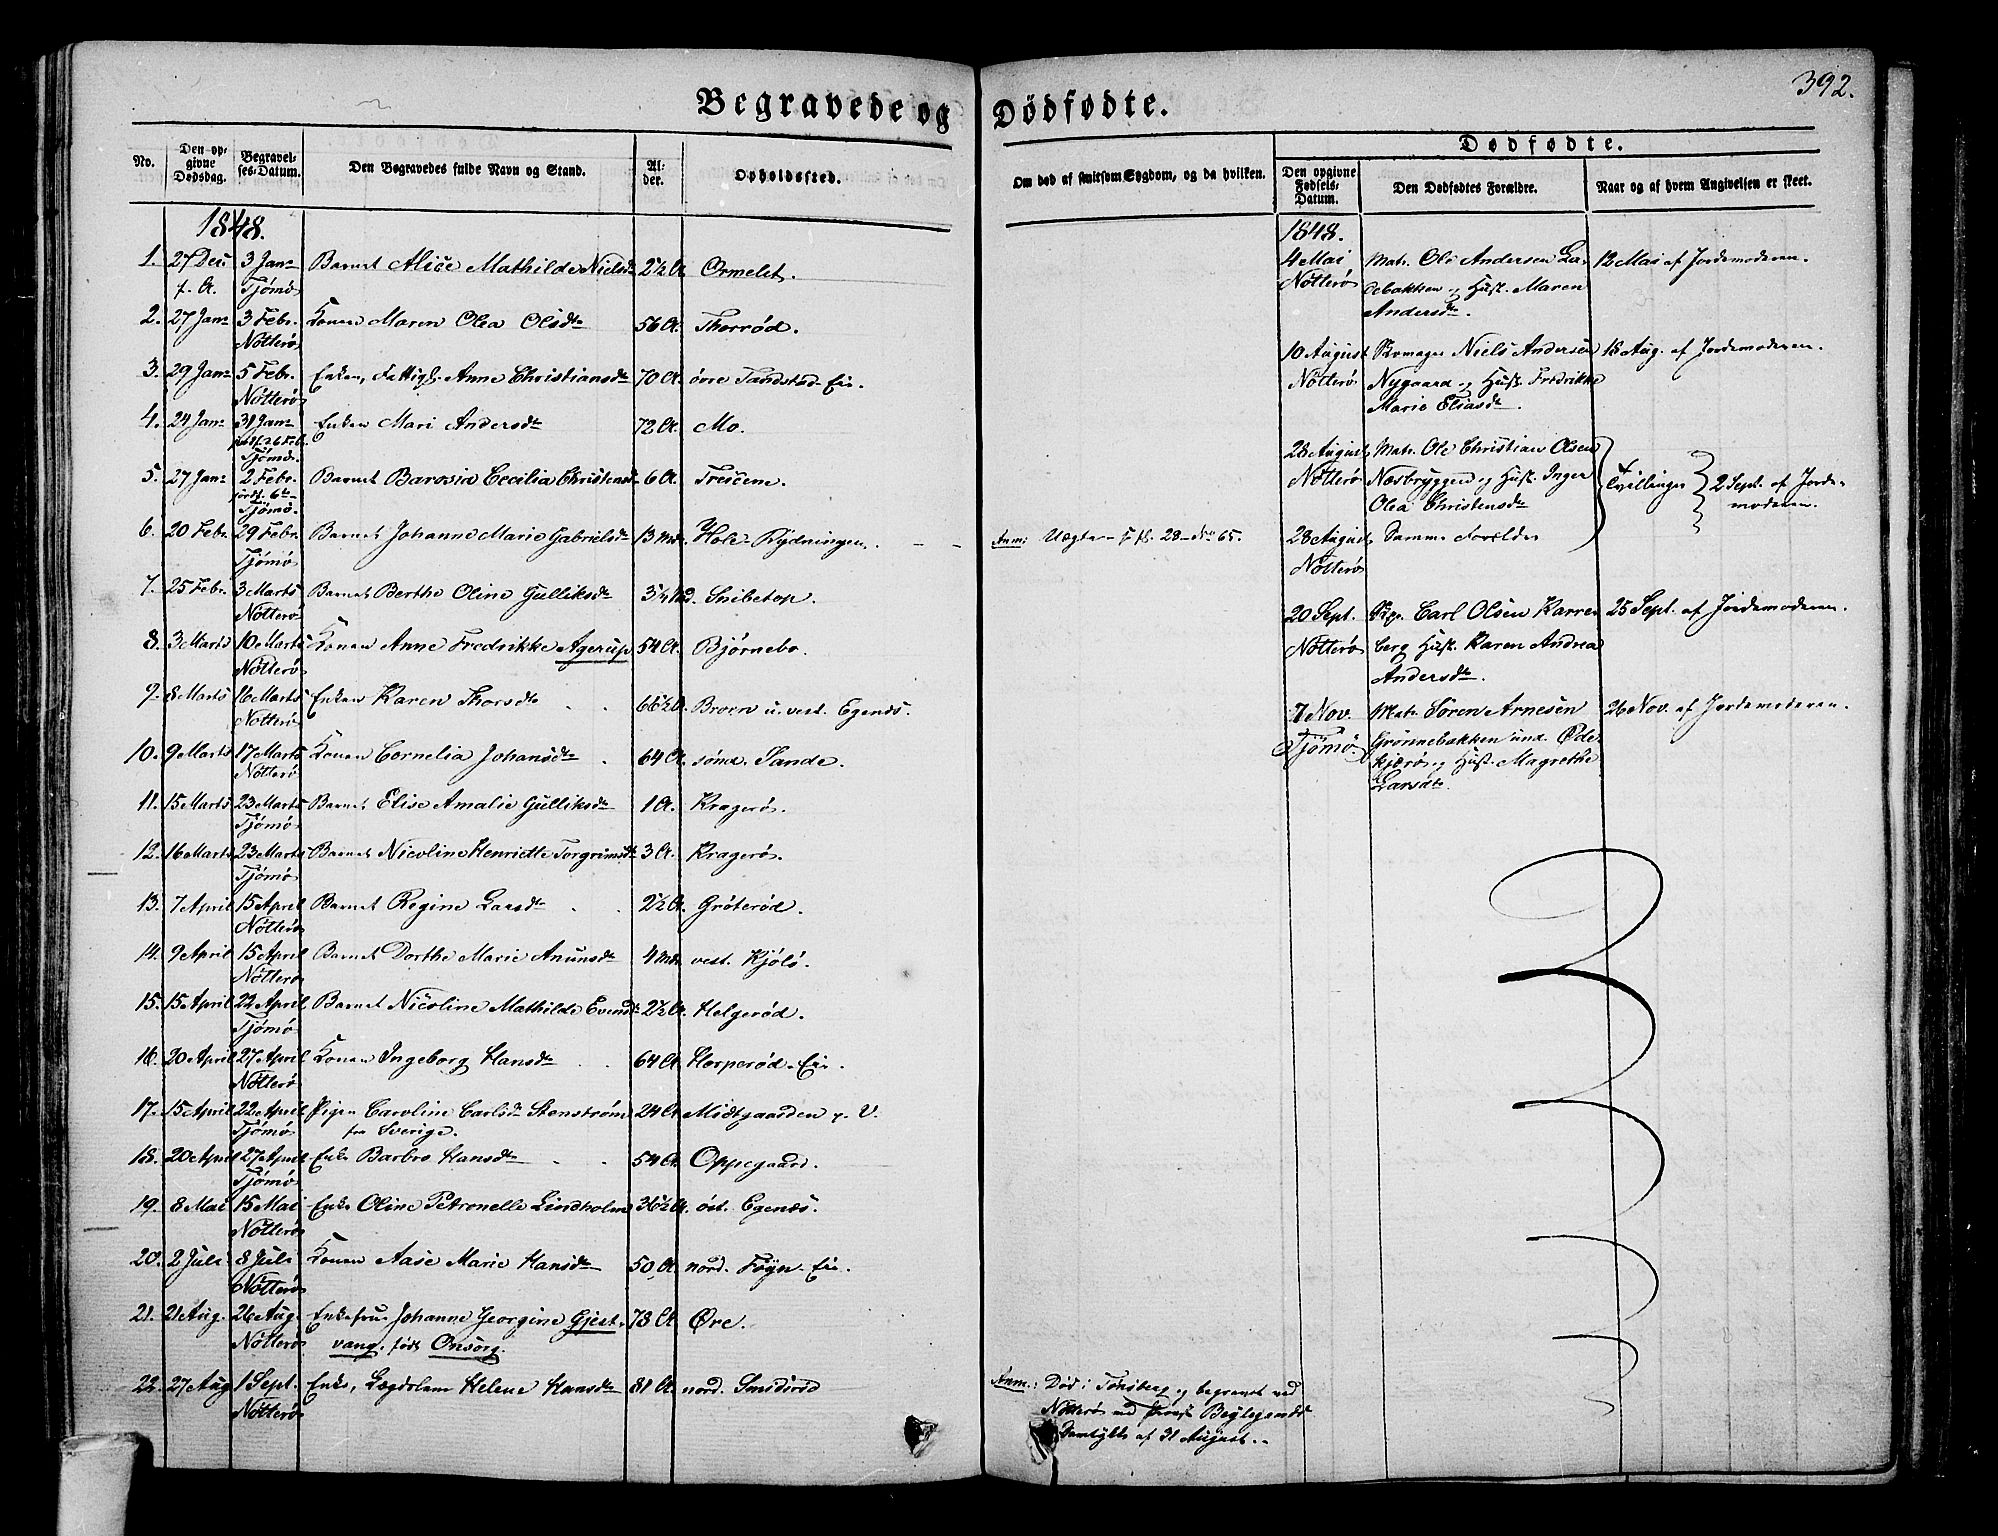 392.
Begravede og Dødfødte.
No.
Den opgivne Dødsdag.
Begravelses-Datum.
Den Begravedes fulde Navn og Stand.
Alder.
Opholdssted.
Om død af smitsom Sygdom, og da hvilken.
Dødfødte.
Den opgivne Fødsels-Datum.
Den Dødfødtes Forældre.
Naar og af hvem Angivelsen er skeet.
1848.
1. 27 Dec 3 Jan Barnet Alice Mathilde Nielsdtr 2½ A. Ormelet.
f. A. Tjømø
2. 27 Jan 3 Febr. Konen Maren Olea Olsdtr 56 A. Thorrød.
Nøtterø
3. 29 Jan 5 Febr. Enken, Fattigl. Anne Christiansdtr 70 A. Tandstad Eie.
Nøtterø
4. 24 Jan 31 Jan Enken Mari Andersdtr 72 A. Mo.
Tjømø.
5. 27 Jan 2 Febr. Barnet Barosia Cecilia Christensdtr 6 A. Treschem.
jordf. 6te
Tjømø.
6. 20 Febr 29 Febr. Barnet Johanne Marie Gabrielsdtr 13 Md. Hole-Rydningen. Anm: Uægte
Tjømø
7. 25 Febr. 3 Marts Barnet Berthe Oline Gulliksdtr 3½ Md. Snibetop.
Nøtterø
8. 3 Marts 10 Marts Konen Anne Fredrikke Agerup 54 A. Bjørnebo.
Nøtterø
9. 8 Marts 16 Marts Enken Karen Thorsdtr 66½ A. Broen u. vest. Egenæs.
Nøtterø
10. 9 Marts 17 Marts Konen Cornelia Johansdtr 64 A. sønd. Sande.
Nøtterø
11. 15 Marts 23 Marts Barnet Elise Amalie Gulliksdtr 1 A. Kragerø.
Tjømø
12. 16 Marts 23 Marts Barnet Nicoline Henriette Torgrimsdtr 3 A. Kragerø.
Tjømø
13. 7 April 15 April Barnet Regine Larsdtr 2½ A. Grøterød.
Nøtterø
14. 9 April 15 April Barnet Dorthe Marie Anunsdtr 4 Md. vest. Kjøle.
Nøtterø
15. 15 April 22 April Barnet Nicoline Mathilde Evensdtr 2½ A. Helgerød.
Tjømø
16. 20 April 27 April Konen Ingeborg Hansdtr 64 A. Herperød-Eie.
Nøtterø
17. 15 April 22 April Pigen Caroline Carlsd. Stenstrøm 24 A. Midtgaarden p. V.
Tjømø fra Sverige.
18. 20 April 27 April Enke Barbro Hansdtr 54 A. Oppegaard.
Tjømø
19. 8 Mai 15 Mai Enke Oline Petronelle Lindholm 36½ A. øst. Egenæs.
Nøtterø
20. 2 Juli 8 Juli Konen Aase Marie Hansdtr 50 A. nord. Føyn-Eie.
Nøtterø
21. 21 Aug. 26 Aug. Enkefrue Johanne Georgine Gjest- 73 A. Øre.
Nøtterø vang, født Onsorg.
22. 27 Aug 1 Sept. Enke, Lægdslem Helene Hansdtr 81 A. nord. Smidsrød
Nøtterø
Anm.: Død i Tønsberg og begravet ved
Nøtterø med
Samtykke af 31 August.
1848.
4 Mai Matr. Ole Andersen La- 12 Mai af Jordemoderen.
Nøtterø debakken og Hust. Maren
Andersdtr.
10 August Skomager Niels Andersen 18 Aug. af Jordemoderen.
Nøtterø Nygaard og Hust. Fredrikke
Marie Eliasdtr.
28 August Matr. Ole Christian Olsen
Nøtterø Næsbryggen og Hust. Inger Tvillinger 2 Sept. af Jorde-
Olea Christensdtr moderen.
28 August Samme Forældre
Nøtterø
20 Sept. Carl Olsen Karre- 25 Sept. af Jordemoderen.
Nøtterø berg Hust. Karen Andrea
Andersdtr.
7 Nov. Matr. Søren Arnesen 26 Nov. af Jordemoderen.
Tjømø. Grønnebakken und. Øde-
kjærø og Hust. Magrethe
Larsdtr.